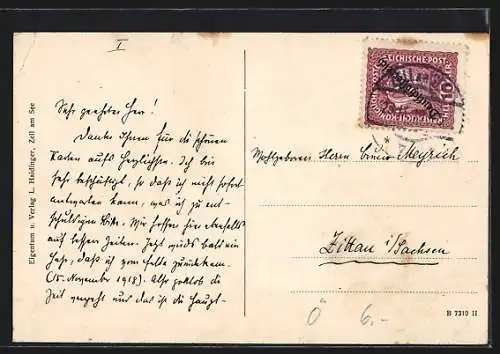 I
Sehr geehrter Herr!
Danke Ihnen für die schönen
Karten aufs Herzlichste. Ich bin
sehr beschäftigt, so daß ich nicht sofort
antworten kann, was ich zu ent-
schuldigen bitte. Wir hoffen hier ebenfalls
auf bessere Zeiten. Jetzt wirds bald ein
Jahr, daß ich vom Felde zurückkam.
(15. November 1918). Also
Zeit vergeht und das ist die Haupt-
Eigentum u. Verlag L. Haidinger, Zell am See
REICHISCHE POST
Wohlgeboren Herrn Meyrich
Zittau i/Sachsen
Ö 6.-
B 7310 II